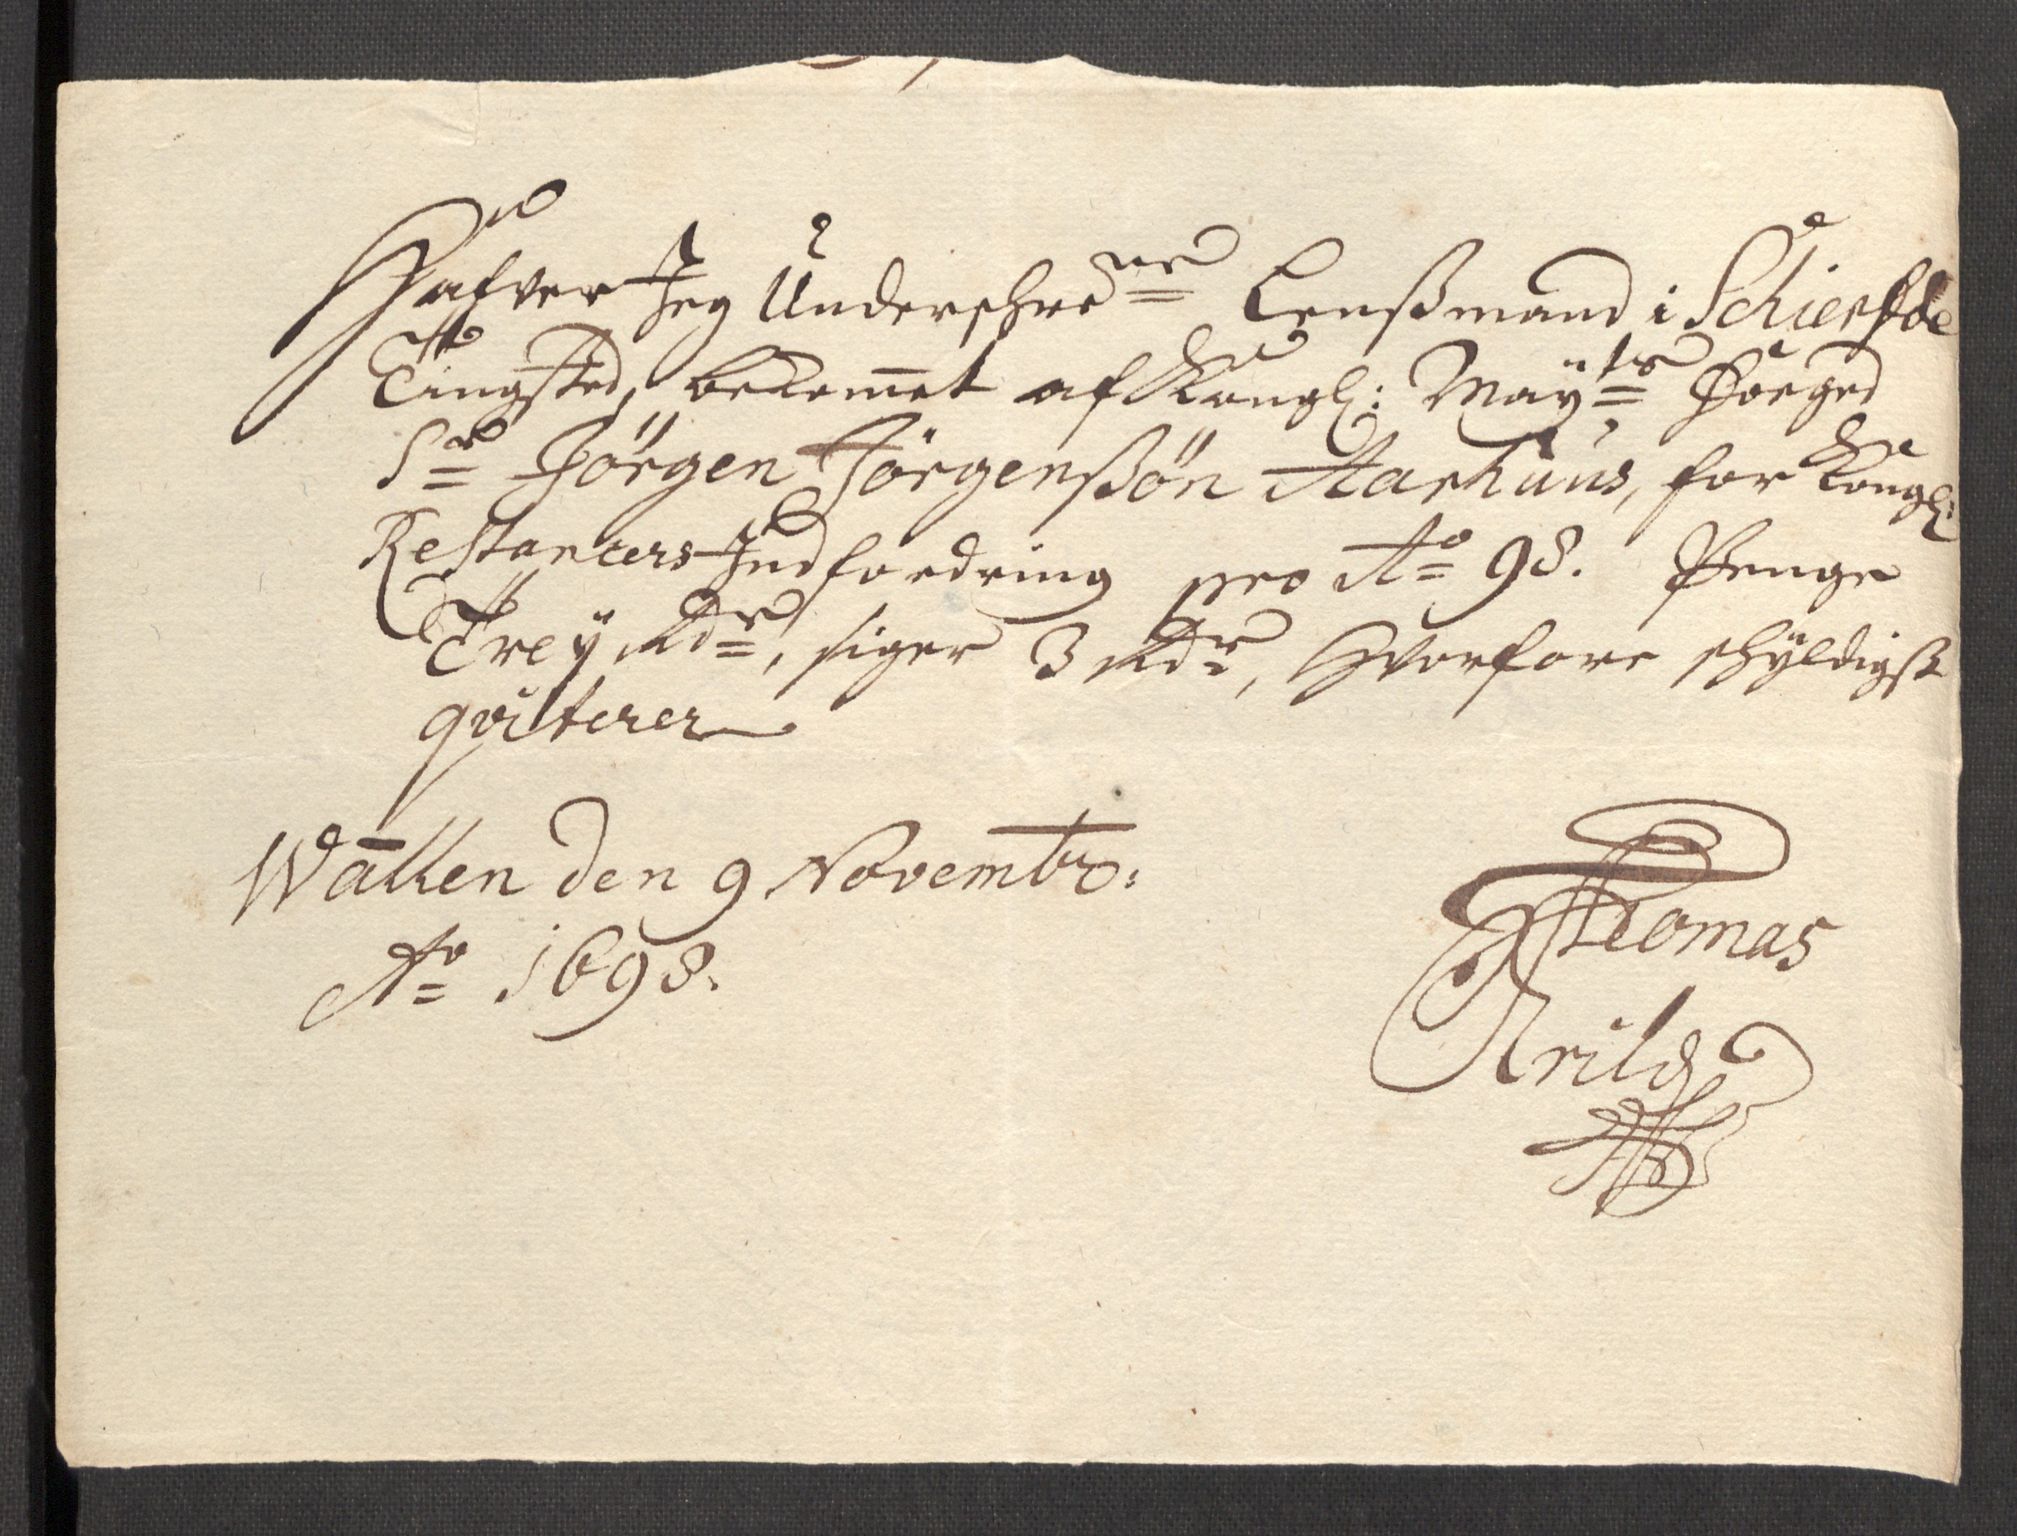 Hafver Jeg Underschrefne Lensßmand i Schierfde
Tingsted, bekommet af Kongl: Mayts Foeged
Sr Jörgen Jörgenßön Aarhuus, for Kongl:
Restancers Indfordring pro Ao 98. Penge
Trey Rdr, siger 3 Rdr, Hvorfore schyldigst
qviterer
Wallen den 9 Novembr:
Ao 1698.
Thomas
Arild